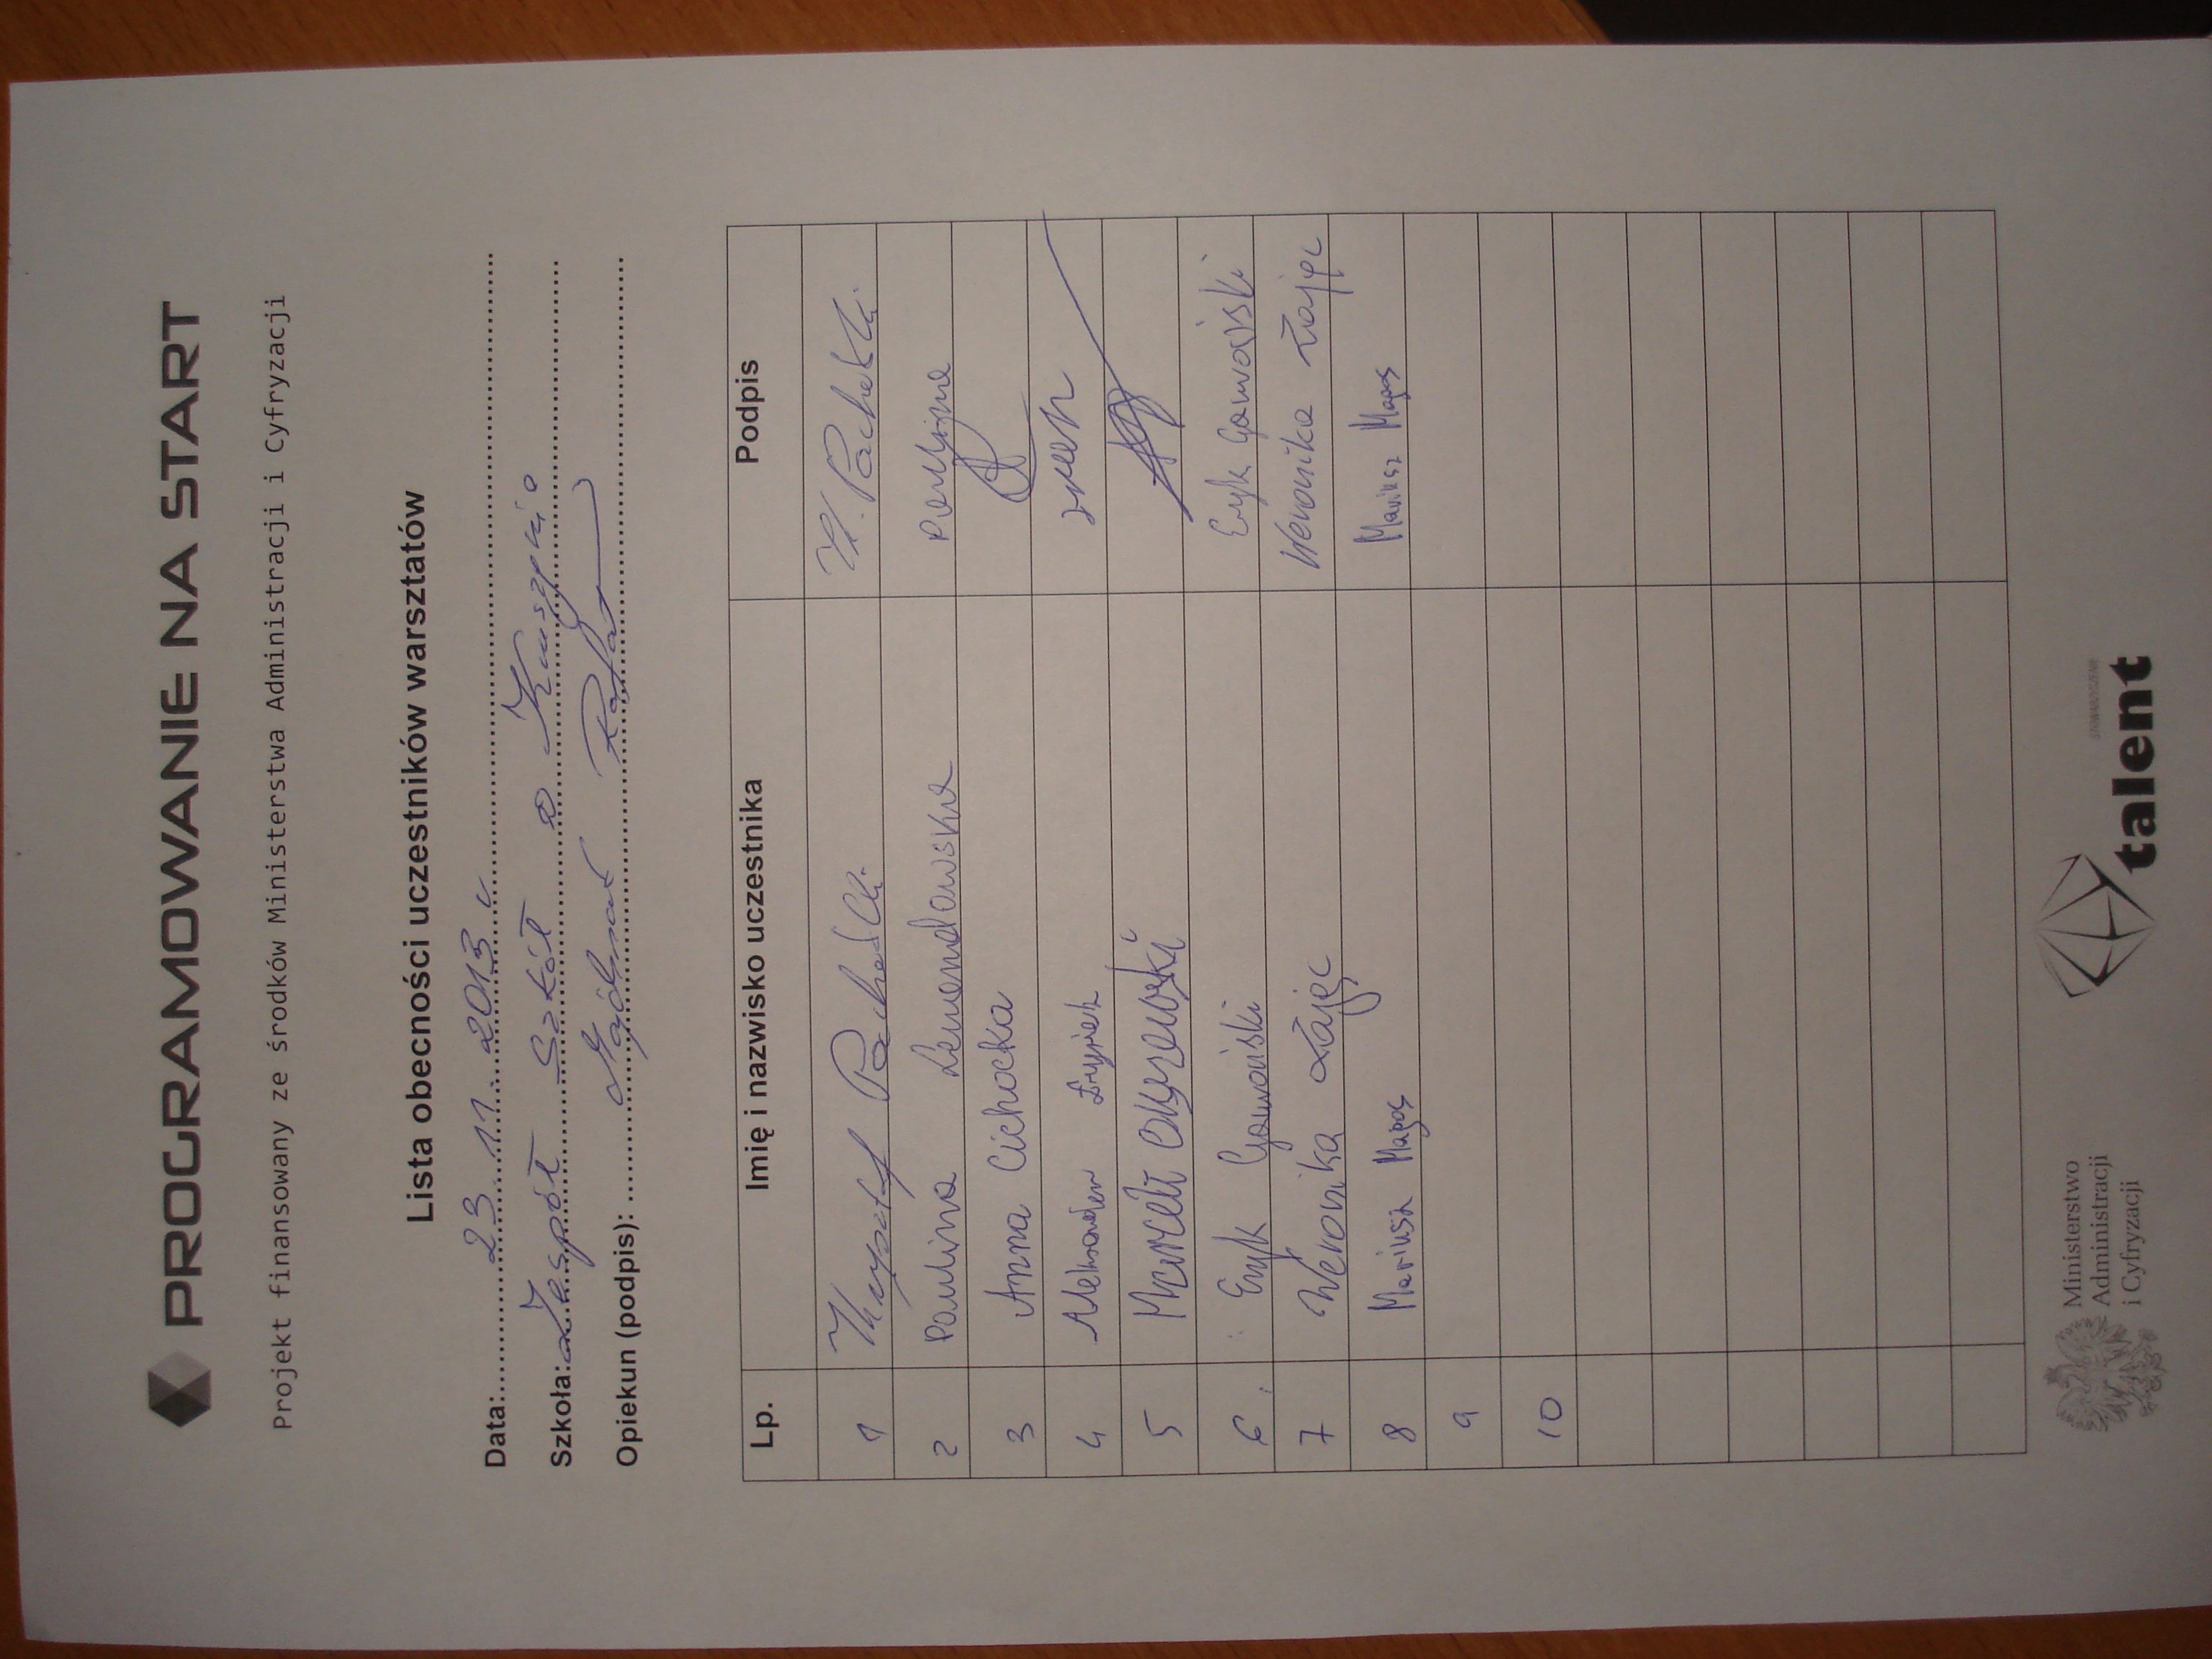 PROGRAMOWANIE NA START
Projekt finansowany ze środków Ministerstwa Administracji i Cyfryzacji
Lista obecności uczestników warsztatów
Data: 23.11.2013 r.
Szkoła: Zespół Szkół w
Opiekun (podpis):
Lp. Imię i nazwisko uczestnika Podpis
1 Krzysztof
2 Paulina Lewandowska Paulina
3 Anna Cichocka
4 Aleksander
5 Marceli
6. Eryk Gawroński Eryk Gawroński
7 Weronika Zając Weronika Zając
8 Mariusz Magos Mariusz Magos
9
10
Ministerstwo
Administracji
i Cyfryzacji
STOWARZYSZENIE
talent